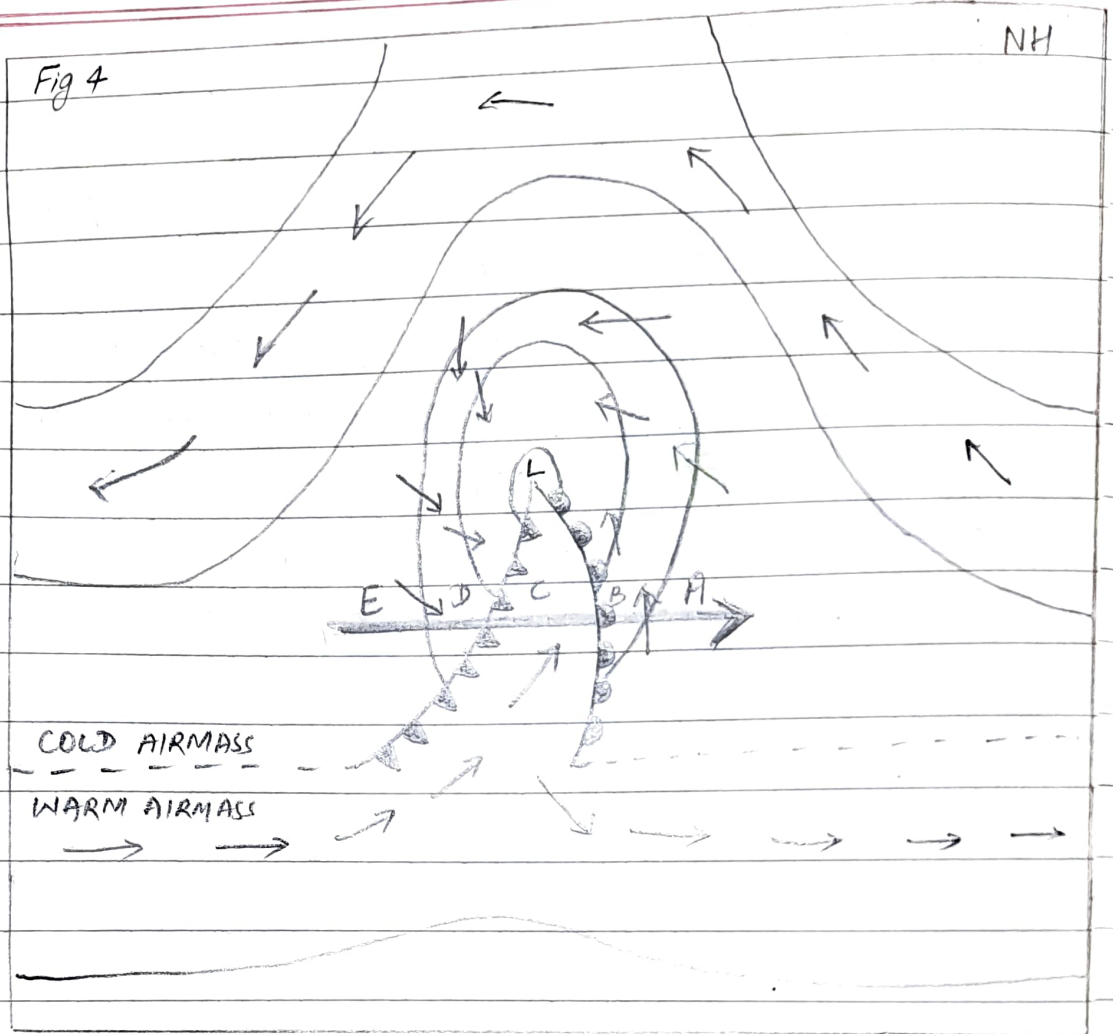 NH
Fig 4
L
E D C B A
COLD AIRMASS
WARM AIRMASS